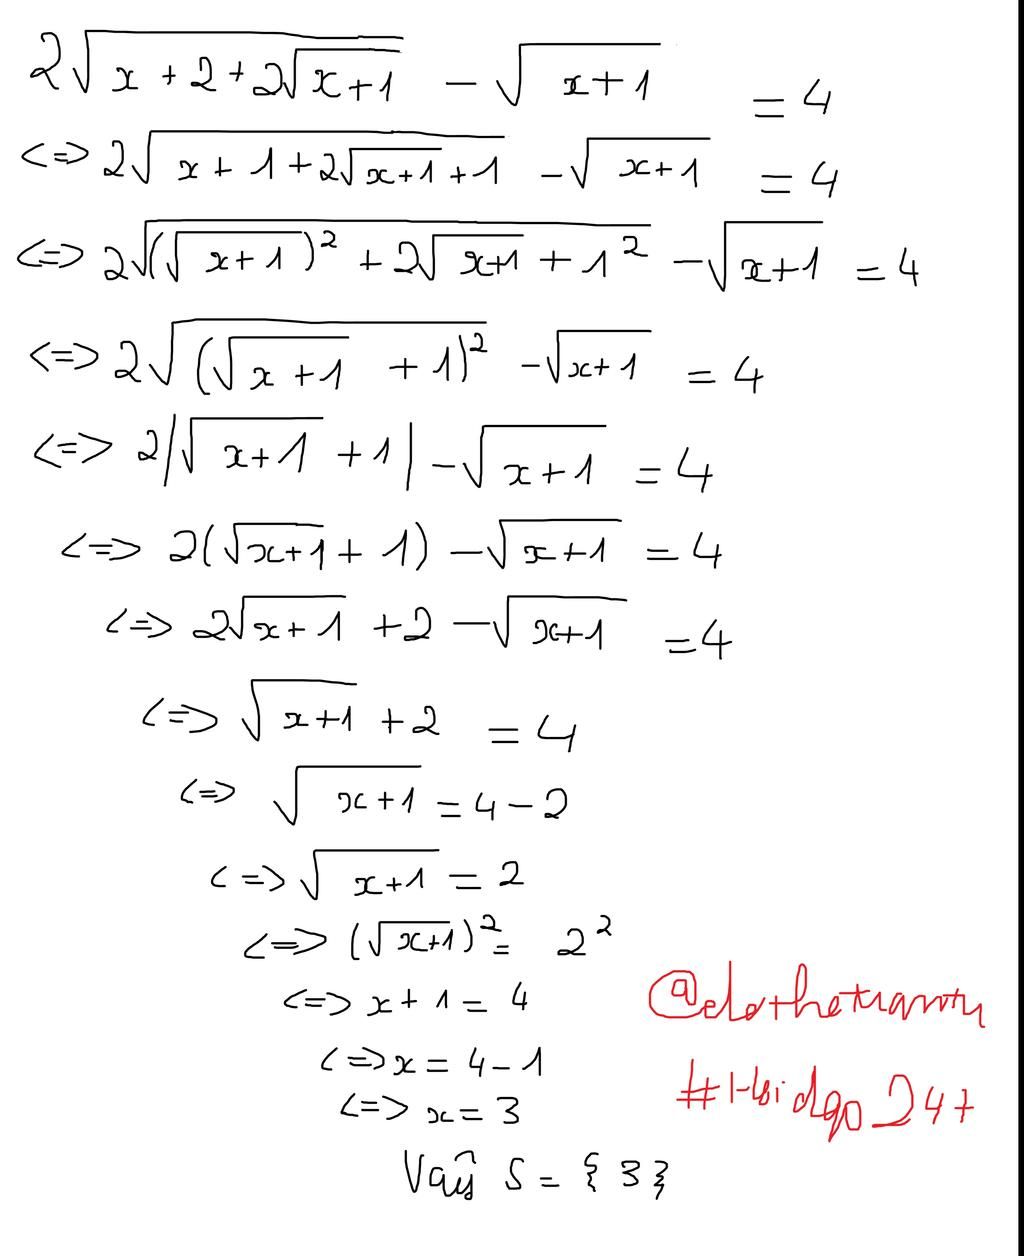 2√(x+2+2√(x+1)) - √(x+1) = 4
<=> 2√(x+1+2√(x+1)+1) - √(x+1) = 4
<=> 2√((√(x+1))²+2√(x+1)+1²) - √(x+1) = 4
<=> 2√((√(x+1)+1)²) - √(x+1) = 4
<=> 2|√(x+1)+1| - √(x+1) = 4
<=> 2(√(x+1)+1) - √(x+1) = 4
<=> 2√(x+1)+2 - √(x+1) = 4
<=> √(x+1)+2 = 4
<=> √(x+1) = 4-2
<=> √(x+1) = 2
<=> (√(x+1))² = 2²
<=> x+1 = 4
<=> x = 4-1
<=> x = 3
Vậy S = {3}